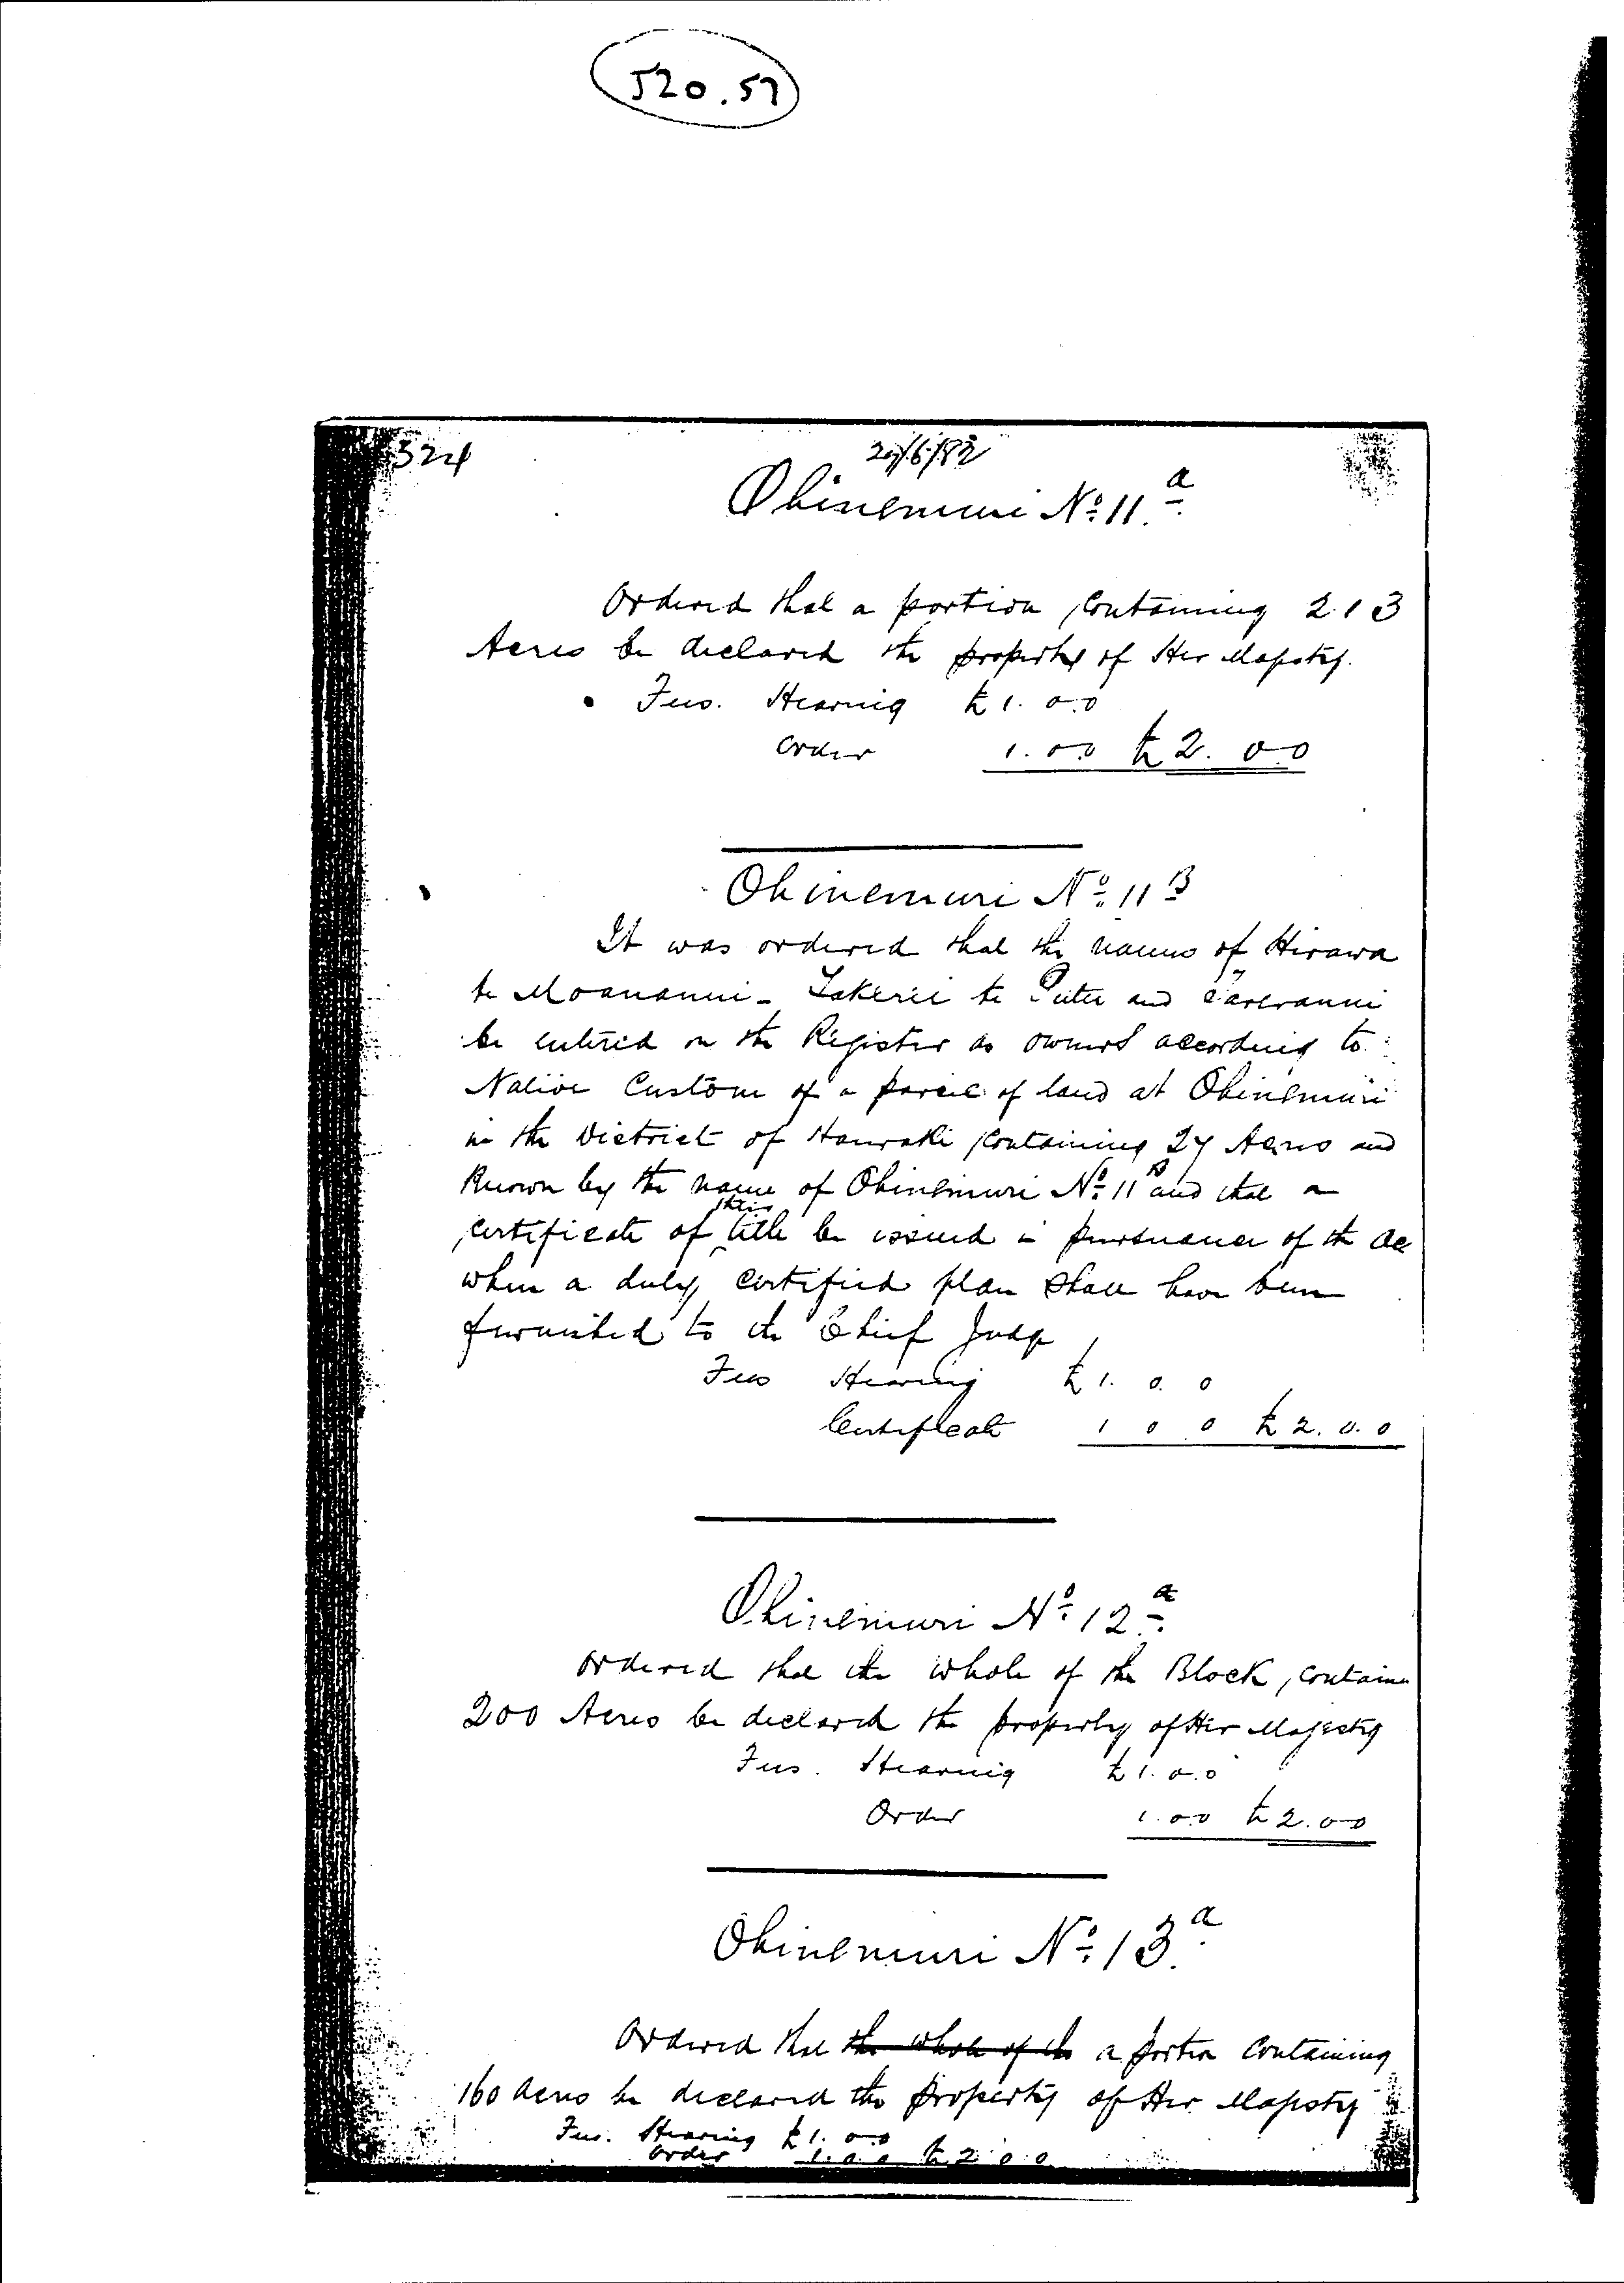 520.57
324
20/6/82
Ohinemuri No 11 a
Ordered that a portion, containing 213
Acres be declared the property of Her Majesty.
Fees. Hearing £1. 0.0
Order 1.0.0 £2. 0.0
Ohinemuri No 11 B
It was ordered that the names of Hirawa
te Moananui - Takerei te and
be entered on the Register as owners according to
Native Custom of a parcel of land at Ohinemuri
in the District of Hauraki containing 27 Acres and
Known by the name of Ohinemuri No 11 B and that a
certificate of their title be issued in pursuance of the Ac
when a duly certified plan shall have been
furnished to the Chief Judge
Fees Hearing £1. 0. 0
Certificate 1 0 0 £2. 0. 0
Ohinemuri No 12 a
Ordered that the whole of the Block, containi
200 Acres be declared the property of Her Majesty
Fees. Hearing £1. 0.0
Order 1.0.0 £2.0.0
Ohinemuri No 13 a
Ordered that the whole of the a portion containing
160 Acres be declared the property of Her Majesty
Fees. Hearing £1. 0.0
Order 1. 0. 0 £2 0 0